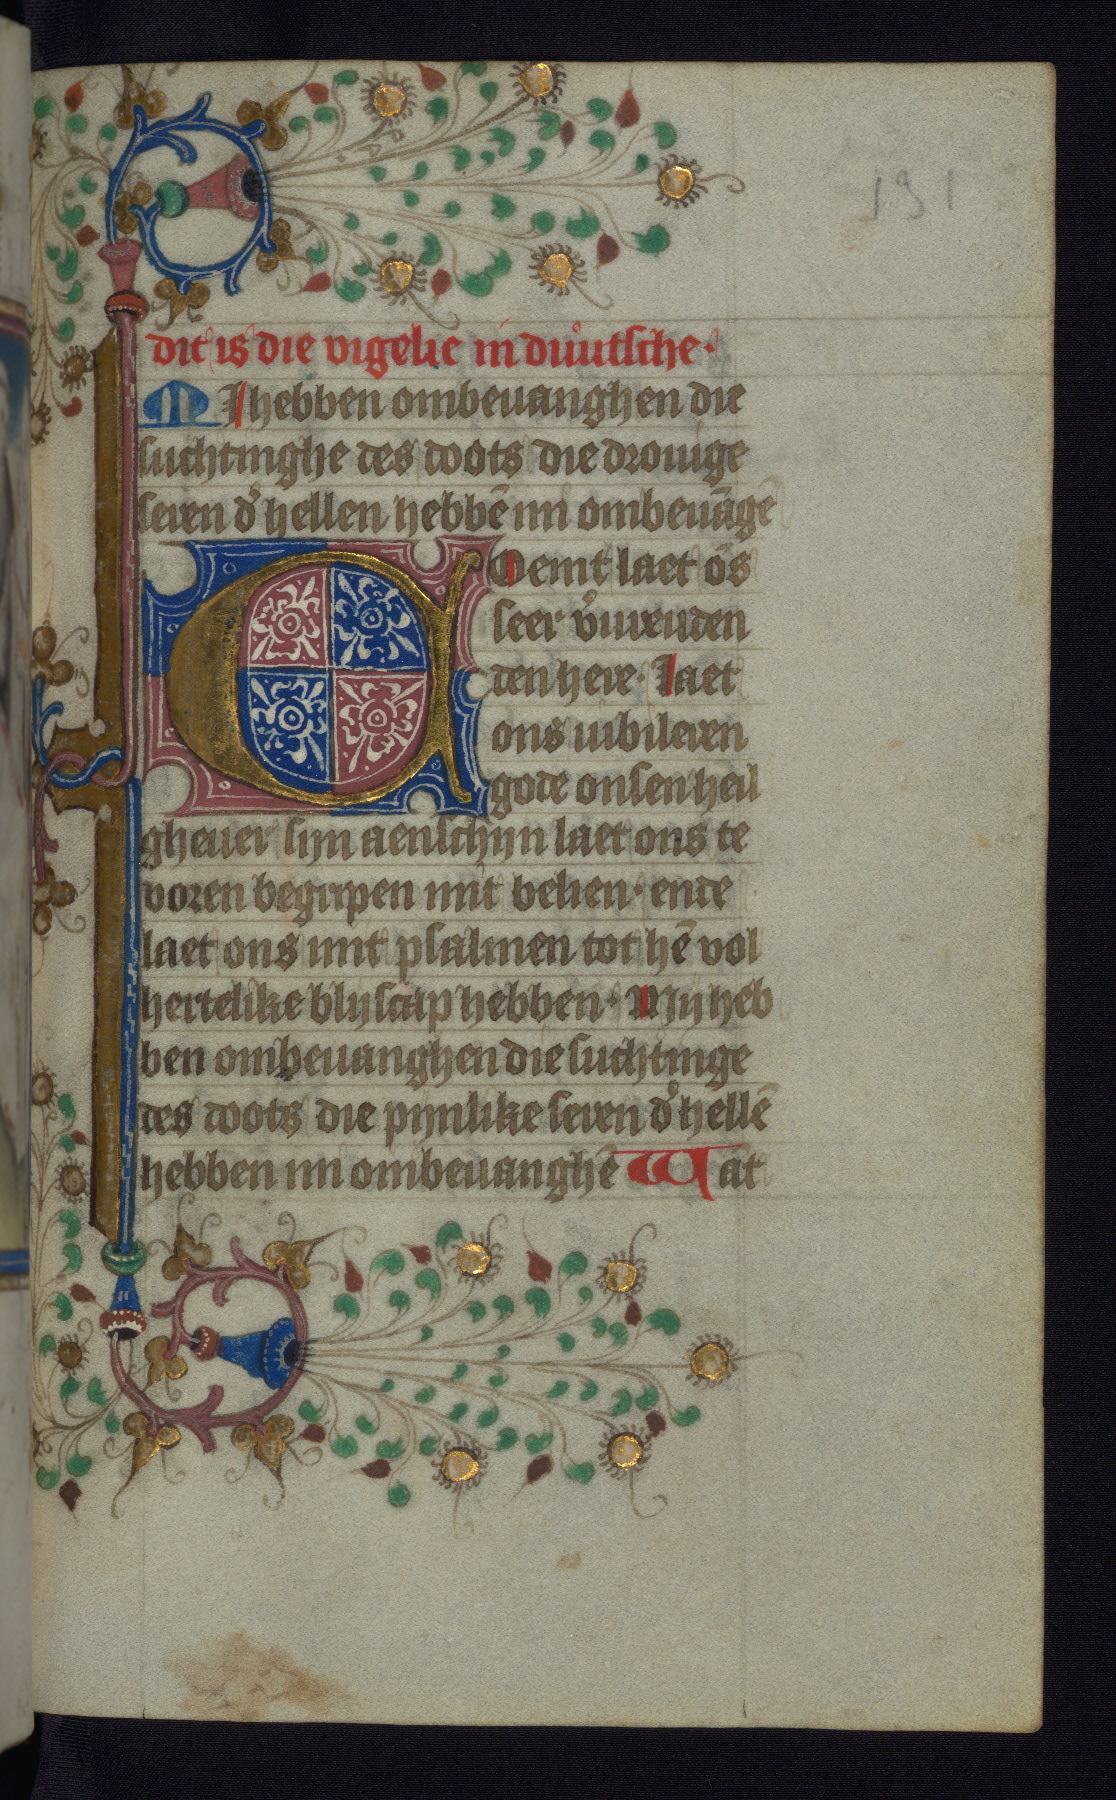 dit is die vigelie in duutsche·
MI hebben ombeuanghen die
suchtinghe des doots die drouige
seren d' hellen hebbē mi ombeuāge
COemt laet ōs
seer v'urenden
den here· Laet
ons iubileren
gode onsen heil
gheuer sijn aenschijn laet ons te
voren begripen mit belien· ende
laet ons mit psalmen tot hē vol
hertelike blijscap hebben· Mij heb
ben ombeuanghen die suchtinge
des doots die pijnlike seren d' hellē
hebben mi ombeuanghē Wat